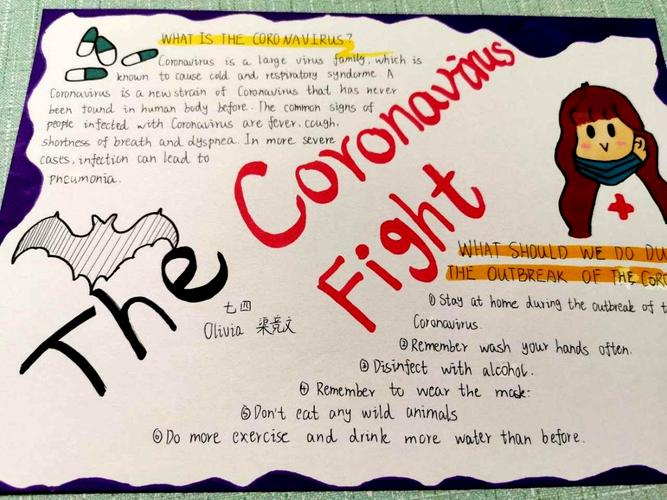 WHAT IS THE CORONAVIRUS?
Coronavirus is a large virus family, which is
known to cause cold and respiratory syndorme. A
Coronavirus is a new strain of Coronavirus that has never
been found in human body before. The common signs of
people infected with Coronavirus are fever, cough,
shortness of breath and dyspnea. In more severe
cases, infection can lead to
pneumonia.
The
Coronavirus
Fight
七四
Olivia 渠竞文
WHAT SHOULD WE DO DU
THE OUTBREAK OF THE COR
①Stay at home during the outbreak of t
Coronavirus
②Remember wash your hands often.
③Disinfect with alcohol.
④ Remember to wear the mask:
⑤Don't eat any wild animals
⑥Do more exercise and drink more water than before.